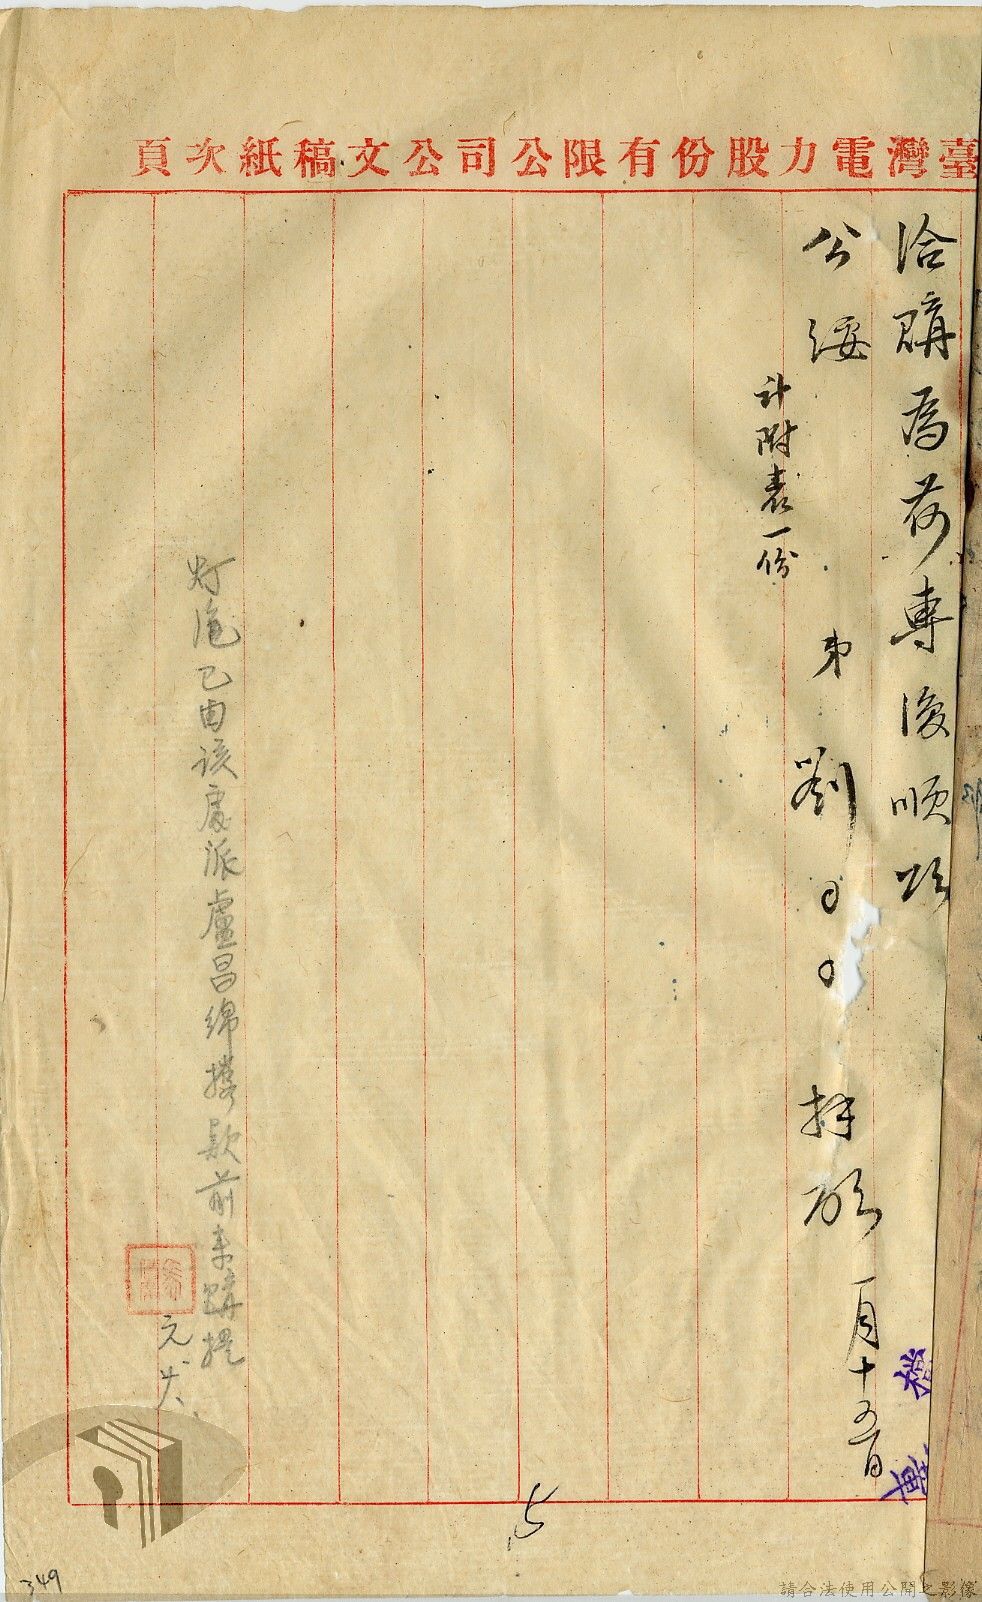 臺灣電力股份有限公司公文稿紙次頁
洽購為荷專復順頌
公綏
弟劉〇〇拜啟 一月十五日
計附表一份
灯泡已由該處派盧昌綿携款前來購提
元
349
請合法使用公開之影像